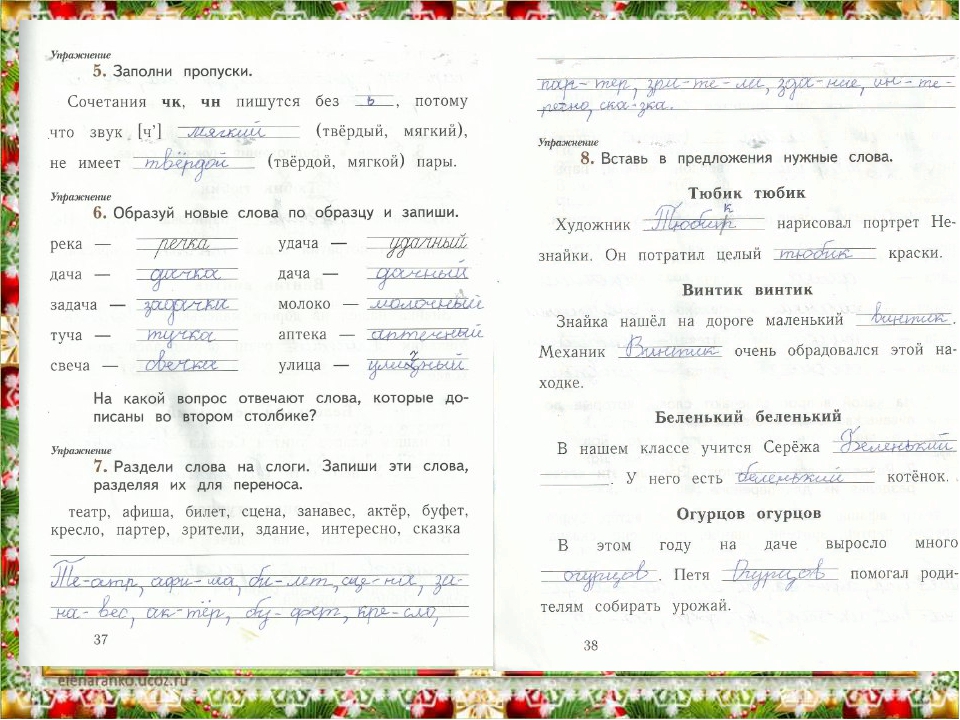 Упражнение
5. Заполни пропуски.
Сочетания чк, чн пишутся без ь, потому
что звук [ч'] мягкий (твёрдый, мягкий),
не имеет твёрдой (твёрдой, мягкой) пары.
Упражнение
6. Образуй новые слова по образцу и запиши.
река — речка удача — удачный
дача — дачка дача — дачный
задача — задачка молоко — молочный
туча — тучка аптека — аптечный
свеча — свечка улица — уличный
На какой вопрос отвечают слова, которые до-
писаны во втором столбике?
Упражнение
7. Раздели слова на слоги. Запиши эти слова,
разделяя их для переноса.
театр, афиша, билет, сцена, занавес, актёр, буфет,
кресло, партер, зрители, здание, интересно, сказка
Те-атр, афи-ша, би-лет, сце-на, за-
на-вес, ак-тёр, бу-фет, кре-сло,
37
пар-тер, зри-те-ли, зда-ние, ин-те-
ресно, ска-зка.
Упражнение
8. Вставь в предложения нужные слова.
Тюбик тюбик
Художник Тюбик нарисовал портрет Не-
знайки. Он потратил целый тюбик краски.
Винтик винтик
Знайка нашёл на дороге маленький винтик.
Механик Винтик очень обрадовался этой на-
ходке.
Беленький беленький
В нашем классе учится Серёжа Беленький
. У него есть беленький котёнок.
Огурцов огурцов
В этом году на даче выросло много
огурцов. Петя Огурцов помогал роди-
телям собирать урожай.
38
elenaranko.ucoz.ru